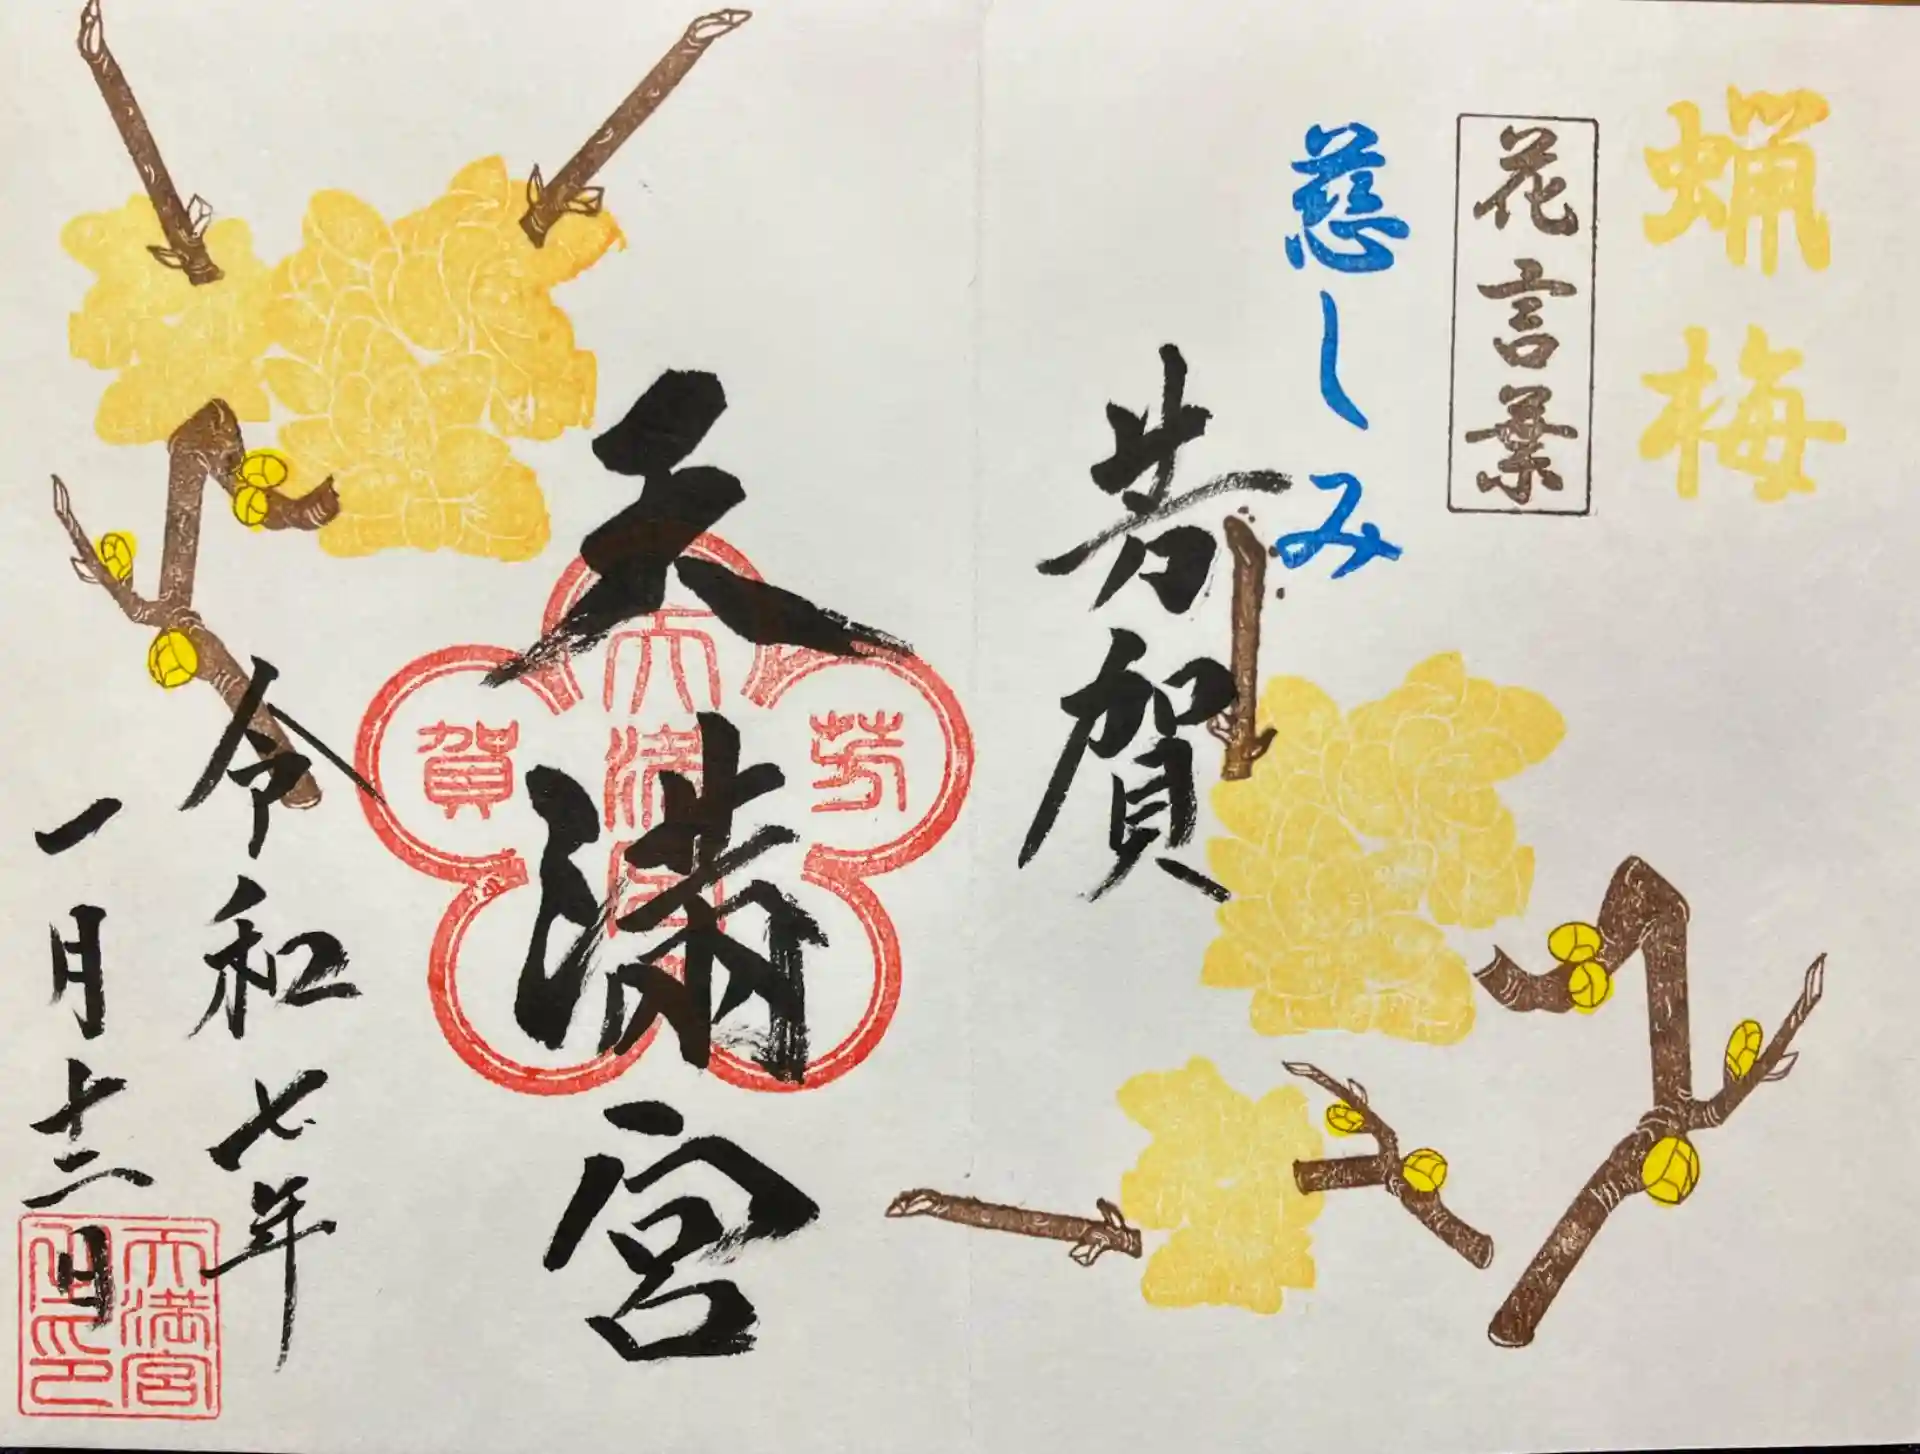 蝋梅
花言葉
慈しみ
芳賀
天満宮
芳
天満宮
賀
令和七年
一月十二日
天満宮
之印